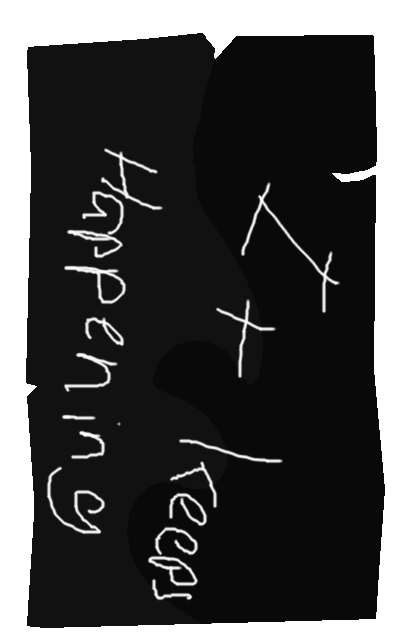 It
keeps
Happening